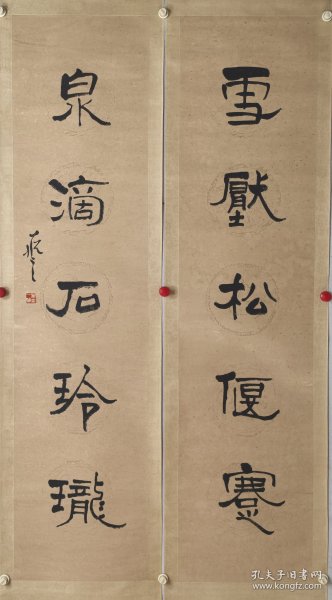 雪壓松偃蹇
泉滴石玲瓏
孔夫子旧书网
www.kongfz.com